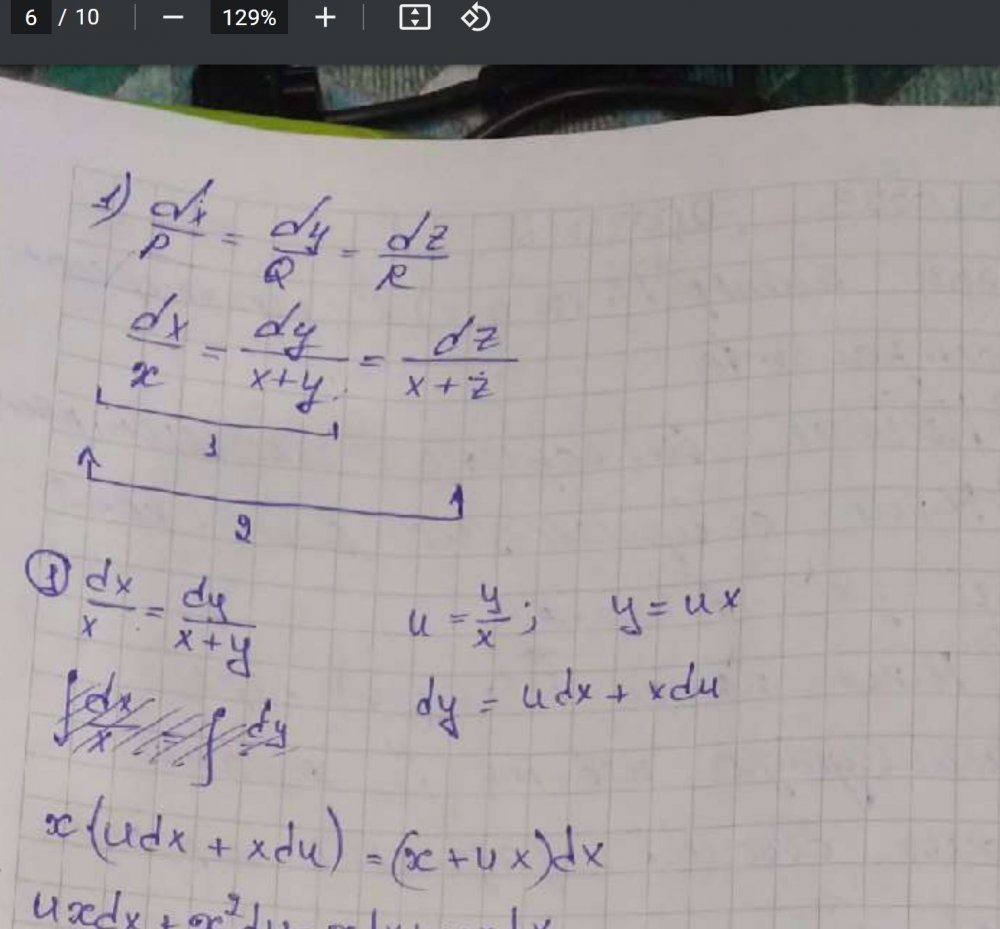 6 / 10 129%
1) dx/P = dy/Q = dz/R
dx/x = dy/(x+y) = dz/(x+z)
1
2
① dx/x = dy/(x+y) u = y/x; y = ux
∫dx/x = ∫dy dy = udx + xdu
x(udx + xdu) = (x+ux)dx
uxdx + x²du